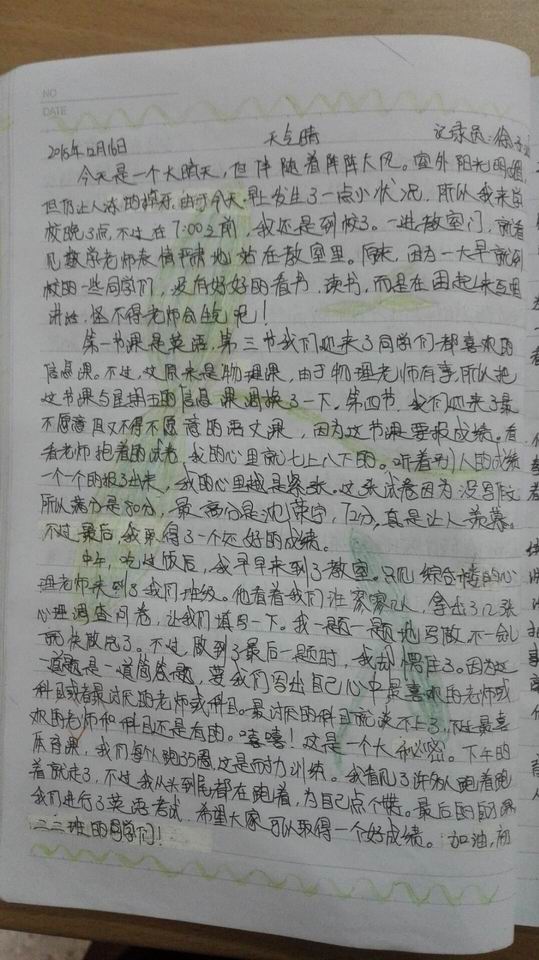 NO
DATE
2015年12月16日 天气晴 记录员:徐
今天是一个大晴天,但伴随着阵阵大风。室外阳光明媚,
但仍让人冻的 由于今天 发生了一点小状况,所以我来学
校晚了点,不过在7:00之前,我还是到校了。一进教室门,就看
见数学老师表情严肃地站在教室里。原来,因为一大早就到
校的一些同学们,没有好好的看书,读书,而是在围起来互相
讲话,怪不得老师会生气呢!
第一节课是英语,第三节我们迎来了同学们都喜欢的
信息课。不过,这原来是物理课,由于物理老师有事,所以把
这节课与星期五的信息课调换了一下。第四节,我们迎来了最
不愿意但又不得不愿意的语文课,因为这节课要报成绩。看
看老师抱着的试卷,我的心里就七上八下的。听着别人的成绩
一个一个的报了出来,我的心里越是紧张。这张试卷因为没写作文
所以满分是80分,最高分是 宇,72分,真是让人羡慕。
不过最后,我取得了一个还好的成绩。
中午,吃过饭后,我早早来到了教室。只见综合楼的心
理老师来到了我们班级。他看着我们 人,拿出了12张
心理调查问卷,让我们填写一下。我一题一题地写做,不一会儿
就快做完了。不过,做到了最后一题时,我却愣住了。因为这
一道题是一道简答题,要我们写出自己心中最喜欢的老师或
科目或者最讨厌的老师或科目。最讨厌的科目就谈不上了,不过最喜
欢的老师和科目还是有的。嘻嘻!这是一个大秘密。下午的
体育课,我们每个人跑35圈,这是耐力训练。我看见了许多人跑着跑
着就走了,不过我从头到尾都在跑着,为自己点个赞。最后的
我们进行了英语考试,希望大家可以取得一个好成绩。加油,初
二三班的同学们!